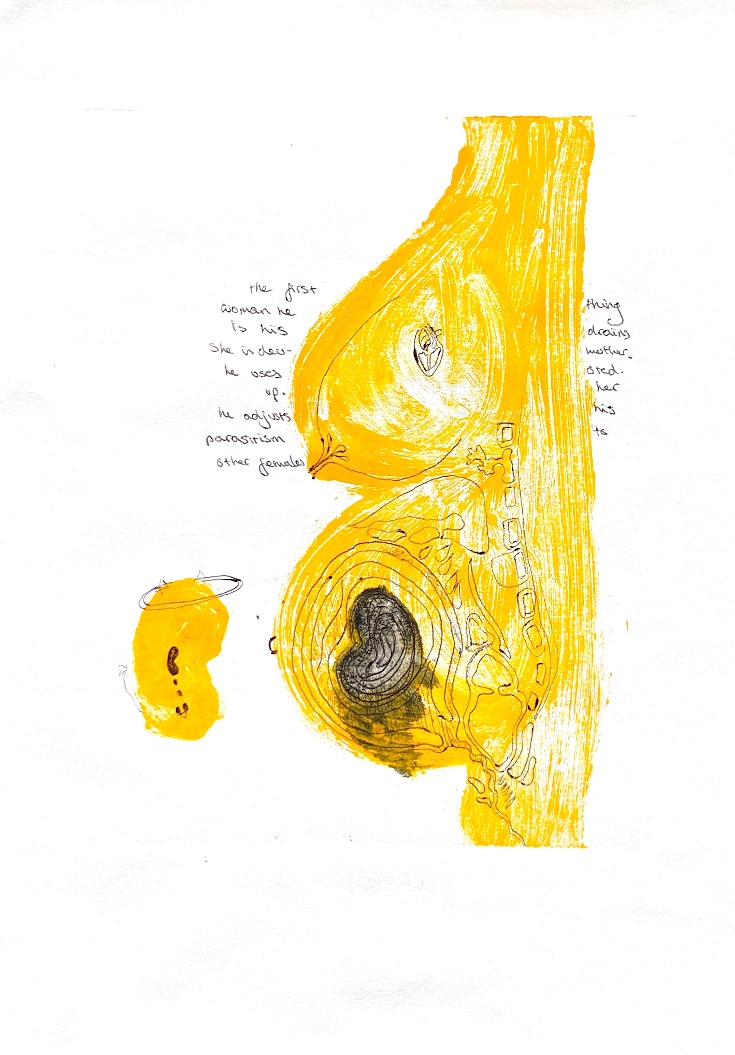 the first
woman he
is his
She in
he uses
up.
he adjusts
parasitism
other females
thing
drains
mother.
her
his
ts